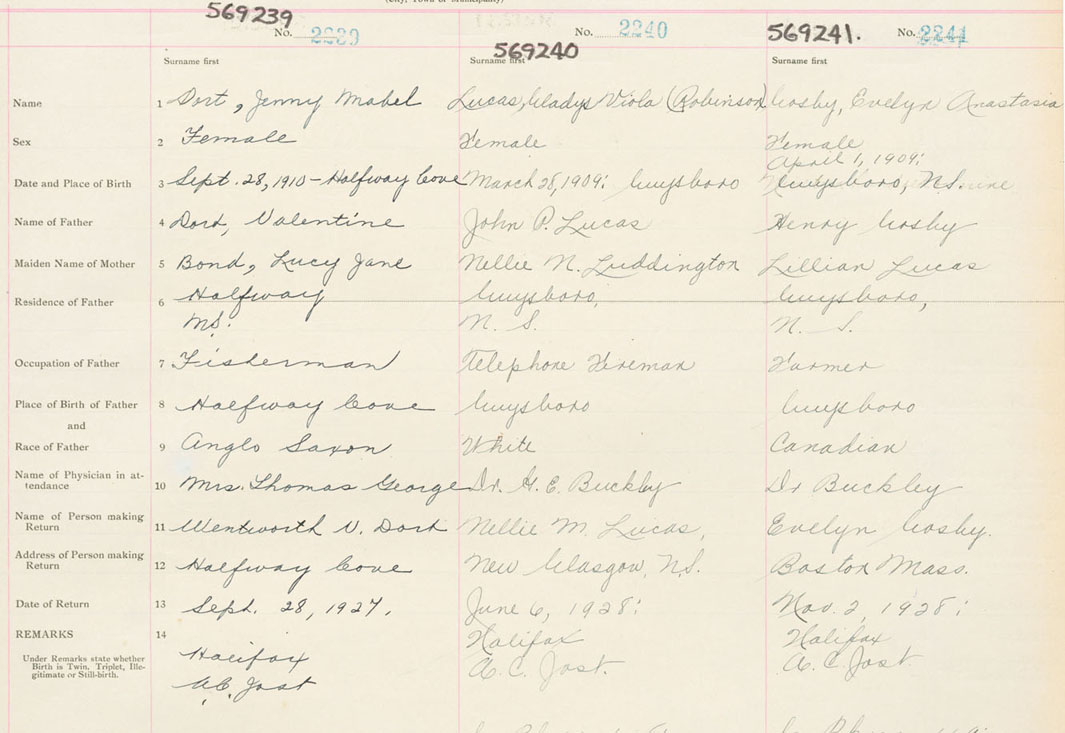 (City, Town or Municipality)
569239
No. 2239
569240
No. 2240
569241.
No. 2241
Surname first
Surname first
Surname first
Name 1 Dort, Jenny Mabel
Lucas, Gladys Viola (Robinson)
Cosby, Evelyn Anastasia
Sex 2 Female
Female
Female
Date and Place of Birth 3 Sept. 28, 1910 – Halfway Cove
March 28, 1909: Guysboro
April 1, 1909:
Guysboro, N.S.
Name of Father 4 Dort, Valentine
John P. Lucas
Henry Cosby
Maiden Name of Mother 5 Bond, Lucy Jane
Nellie N. Luddington
Lillian Lucas
Residence of Father 6 Halfway
Guysboro,
Guysboro,
N.S.
N. S.
N. S.
Occupation of Father 7 Fisherman
Telephone Fireman
Farmer
Place of Birth of Father 8 Halfway Cove
Guysboro
Guysboro
and
Race of Father 9 Anglo Saxon
White
Canadian
Name of Physician in at-
tendance 10 Mrs. Thomas George
Dr. G. E. Buckley
Dr Buckley
Name of Person making
Return 11 Wentworth V. Dort
Nellie M. Lucas,
Evelyn Cosby.
Address of Person making
Return 12 Halfway Cove
New Glasgow, N.S.
Boston Mass.
Date of Return 13 Sept. 28, 1927.
June 6, 1928:
Nov. 2, 1928:
REMARKS 14
Under Remarks state whether
Birth is Twin, Triplet, Ille-
gitimate or Still-birth.
Halifax
A.C. Jost
Halifax
A. C. Jost.
Halifax
A. C. Jost.